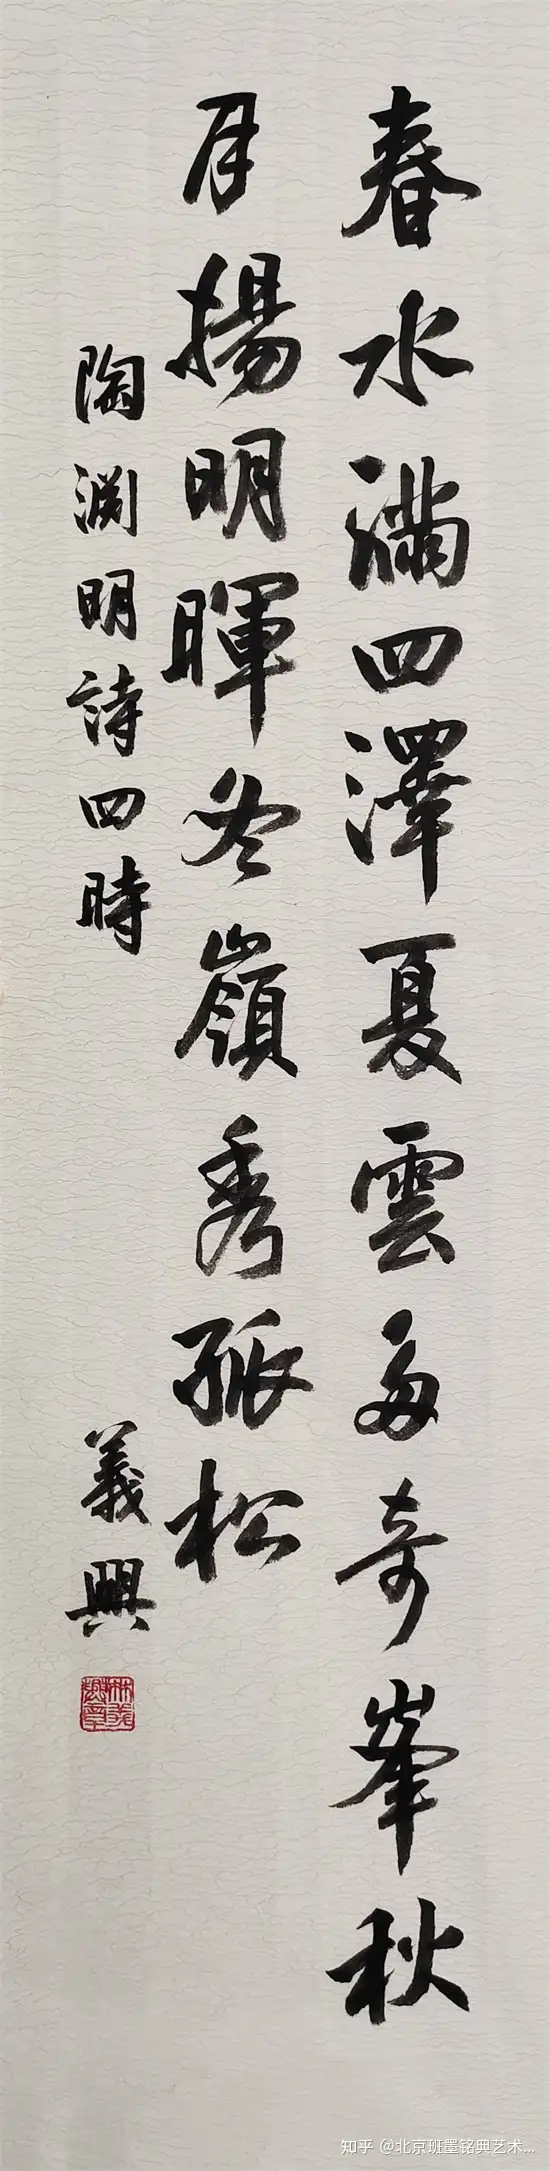 春水滿四澤夏雲多奇峯秋
月揚明暉冬嶺秀孤松
陶渊明詩四時
義興
知乎 @北京班墨铭典艺术...